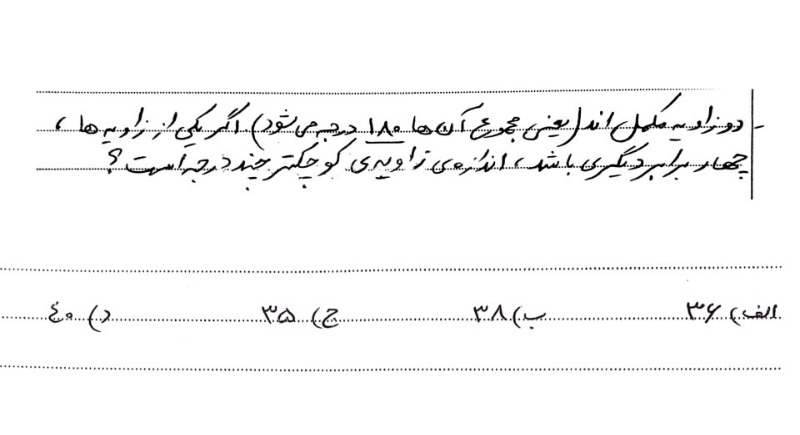 - دو زاویه مکمل اند (یعنی مجموع آن ها ۱۸۰ درجه می شود) اگر یکی از زاویه ها ،
چهار برابر دیگری باشد ، اندازه ی زاویه ی کوچکتر چند درجه است ؟
الف) ۳۶ ب) ۳۸ ج) ۳۵ د) ۴۰